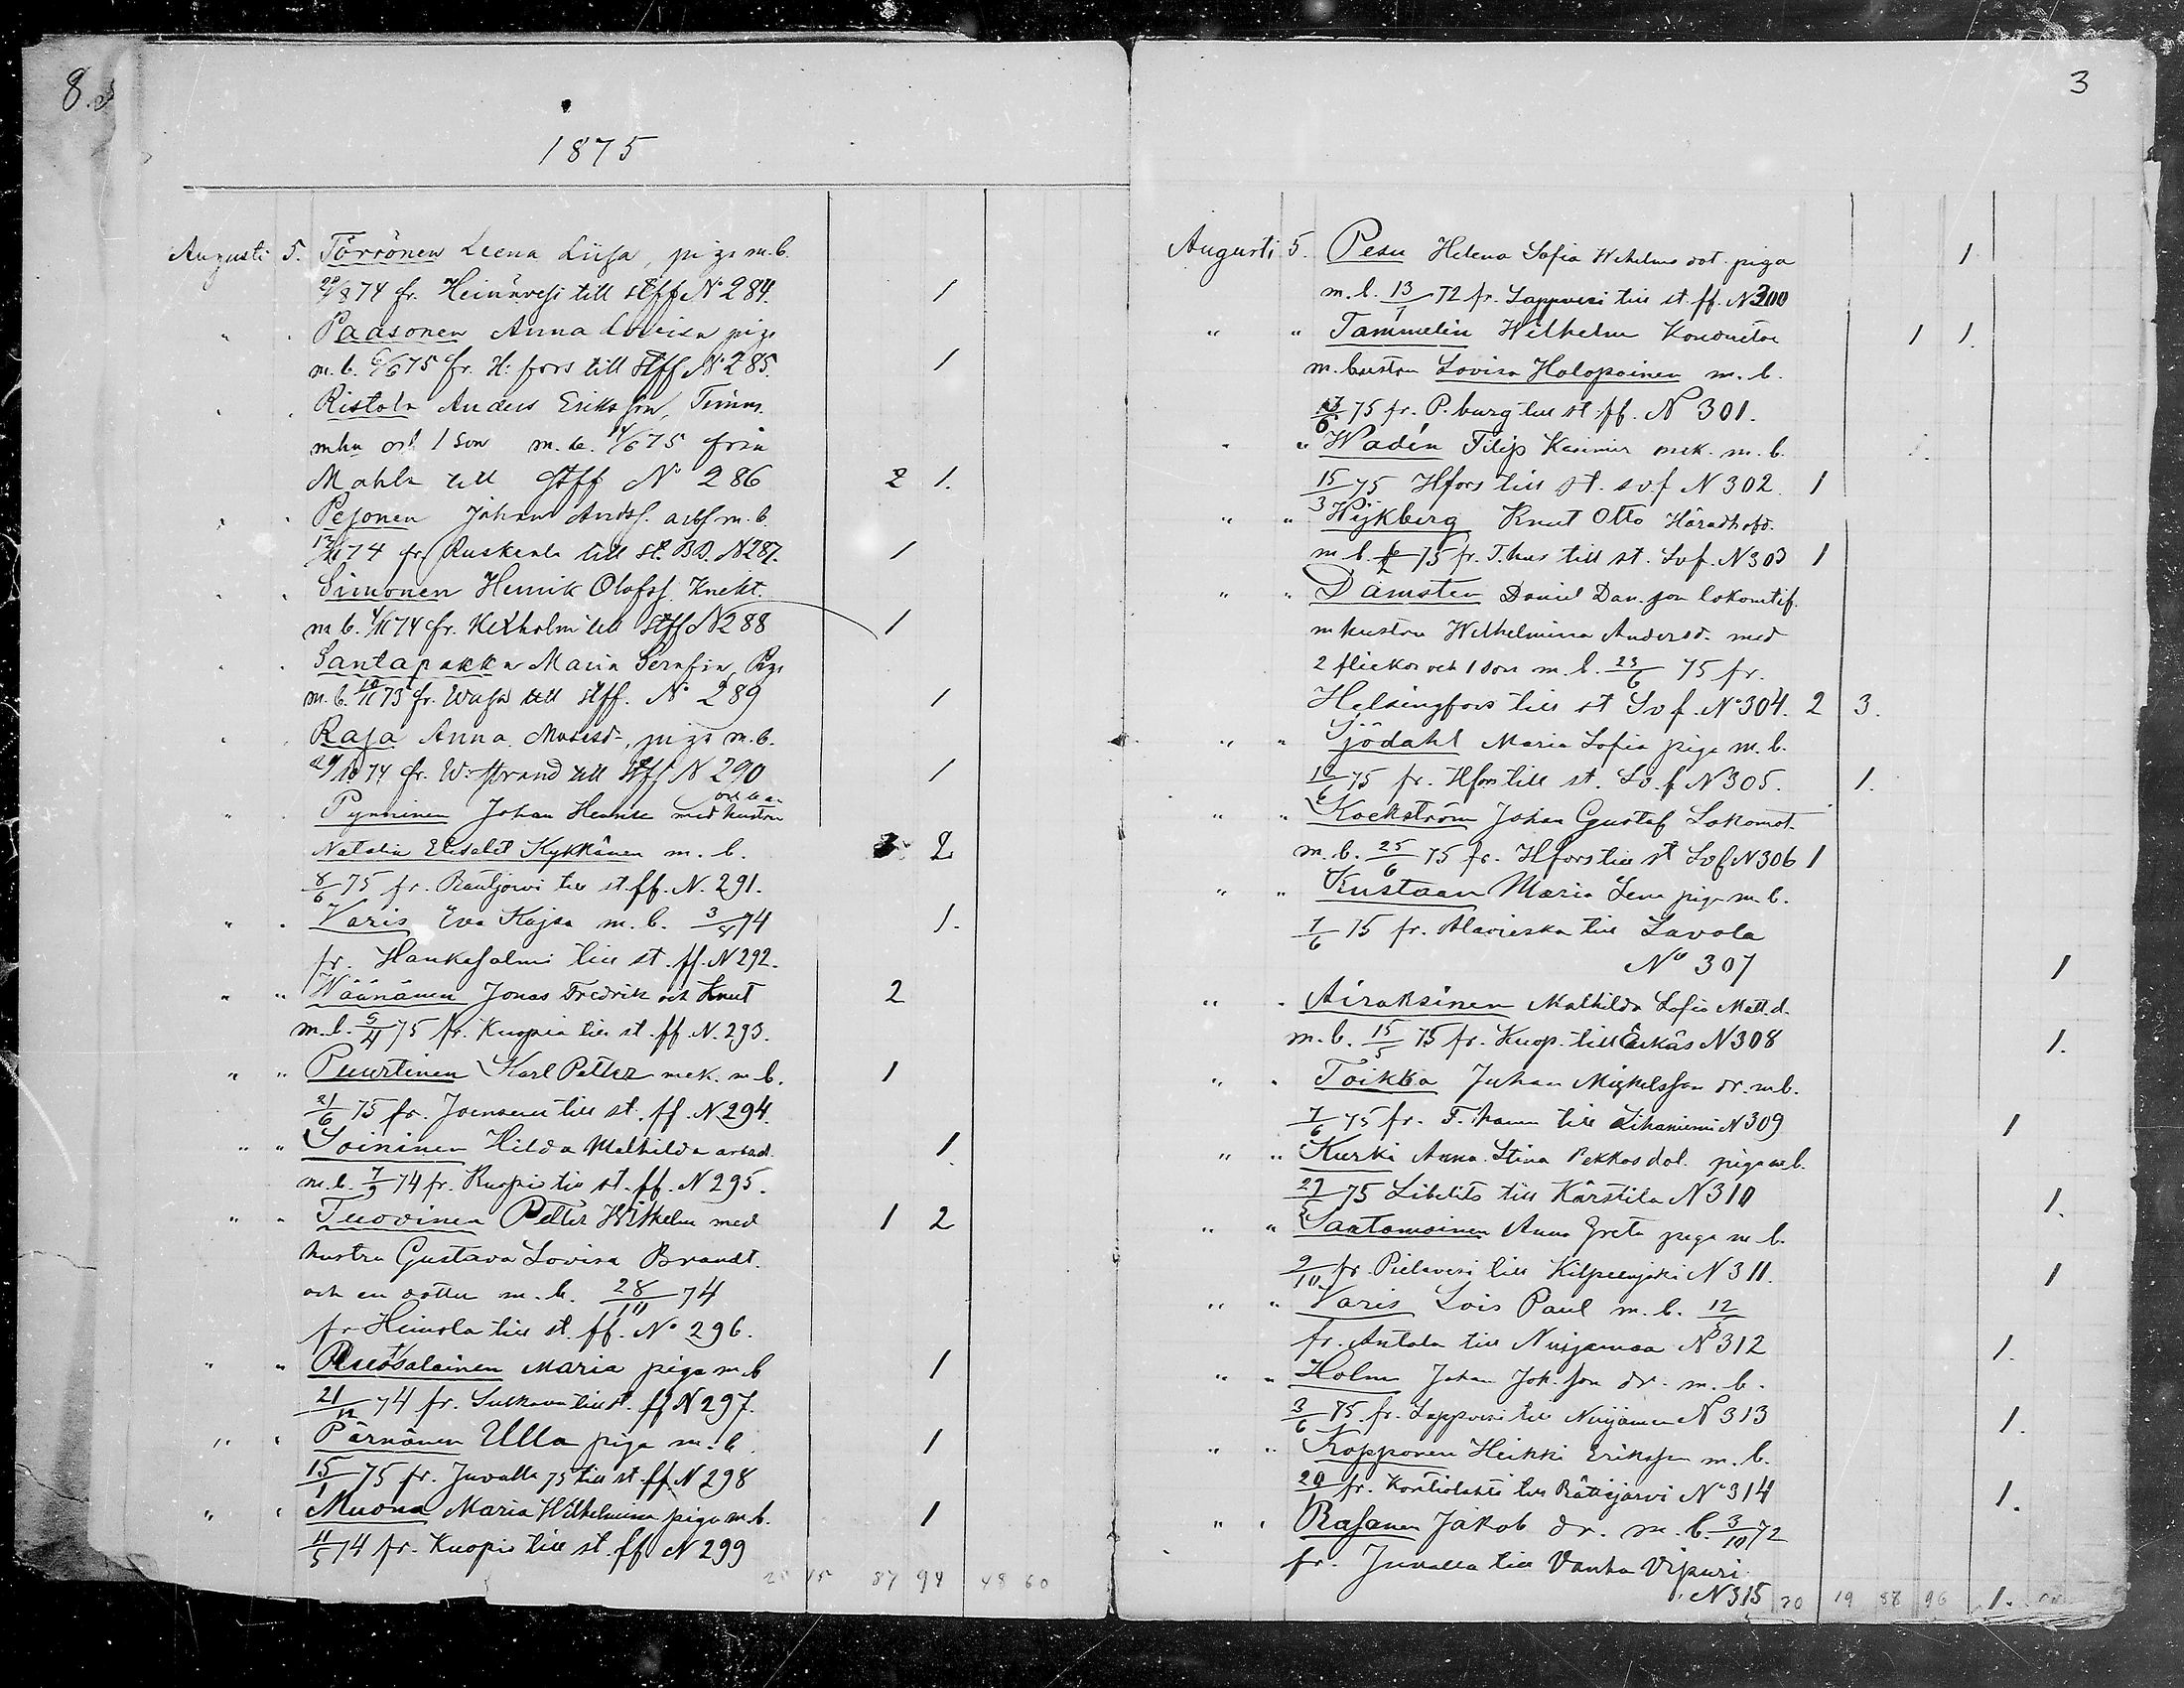 8.
1875
Augusti 5. Törrönen Leena Liisa, piga m.b.
29/8 74 fr. Heinävesi till stff No 284. 1
" . Paasonen Anna Lovisa piga
m.b. 6/6 75 fr. H:fors till stff No 285. 1
. . Ristola Anders Eriksson, Timm.
mhu och 1 son m.b. 14/6 75 från
Mahla till stff No 286 2 1.
" . Pesonen Johan Andsf. arbf m.b.
12/11 74 fr. Ruskeala till st. BD. N287. 1
" . Simonen Henrik Olofsf. Knekt.
m b. 4/11 74 fr. Kexholm till stff N288 1
. . Santapakka Maria Serafia, Piga
m.b. 10/11 73 fr. Wasa till stff. No 289 1
" . Raja Anna Matisd., piga m.b.
29/10 74 fr. W:strand till stff N 290 1
" . Pynninen Johan Henrik med hustru
Natalia Elisabet Kykkänen m. b. 2
8/6 75 fr. Rautjärvi till st. ff. N. 291.
" . Varis Eva Kajsa m. b. 3/8 74 1.
fr. Hankasalmi till st. ff. N 292.
" " Wäänänen Jonas Fredrik och Knut 2
m.b. 5/4 75 fr. Kuopio till st. ff. N. 293.
" " Puurtinen Karl Petter mek. m b. 1
21/6 75 fr. Joensuu till st. ff. N. 294.
" " Soininen Hilda Mathilda 1.
m.b. 7/9 74 fr. Kuopio till st. ff. N 295.
" " Tuovinen Petter Wilhelm med 1 2
hustru Gustava Lovisa Brandt.
och en dotter m. b. 28/10 74
fr Heinola till st. ff. No 296.
" " Ruotsalainen Maria piga m.b 1
21/12 74 fr. Sulkava till st. ff N 297.
" " Pärnänen Ulla piga m. b. 1
15/1 75 fr. Juvalla 75 till st. ff N 298
" " Muona Maria Wilhelmina piga m.b. 1
11/5 74 fr. Kuopio till st. ff N 299
25 15 87 94 48 60
3
Augusti 5. Pesu Helena Sofia Wilhelms dot. piga 1
m.b. 13/1 72 fr. Lappvesi till st. ff. N 300
" " Tammelin Wilhelm Konduktör 1 1.
m. hustru Lovisa Holopainen m. b.
75 fr. P.burg till st. ff. N 301.
" " Wadén Filip Kasimir mek. m. b.
15/3 75 Hfors till st. svf N 302. 1
" " Wijkberg Knut Otto Häradhöfd.
m b. 75 fr. T.hus till st. Svf. N303 1
" " Dämsten Daniel Dan.son lokomtif.
m hustru Wilhelmina Andersd. med
2 flickor och 1 son m. b. 23/6 75 fr.
Helsingfors till st Svf. No 304. 2 3.
" " Sjödahl Maria Sofia piga m. b.
75 fr. Hfors till st. Sv. f N 305. 1.
" " Kockström Johan Gustaf Lokomot.
m. b. 25/6 75 fr. Hfors till st Svf N 306 1
" " Kustaan Maria Lena piga m. b.
7/6 75 fr. Alavieska till Lavola
No 307 1
" . Airaksinen Mathilda Sofia Matt.d.
m. b. 15/5 75 fr. Kuop. till N 308 1.
" . Toikka Juhan Mickelsson dr. m b.
7/6 75 fr. F.hamn till Lihaniemi N 309 1
" " Kurki Anna Stina Pekkas dot. piga m b.
75 Libelits till Kärstilä N 310 1.
" " Santamoinen Anna Greta piga m b.
9/10 fr. Pielavesi till Kilpeenjoki N 311. 1
" " Varis Lois Paul m. b. 12/5
fr. Antola till Nuijamaa N 312 1.
" " Holm Johan Joh.son dr. m. b.
3/6 75. fr. Lappvesi till Nuijamaa N 313 1.
" " Kopponen Heikki Eriksson m. b.
fr. Kontiolahti till Rättijärvi No 314 1.
" " Rasanen Jakob dr. m. b. 3/10 72
fr. Juvalla till Vanha Vipuri
N 315 20 19 88 96 1.